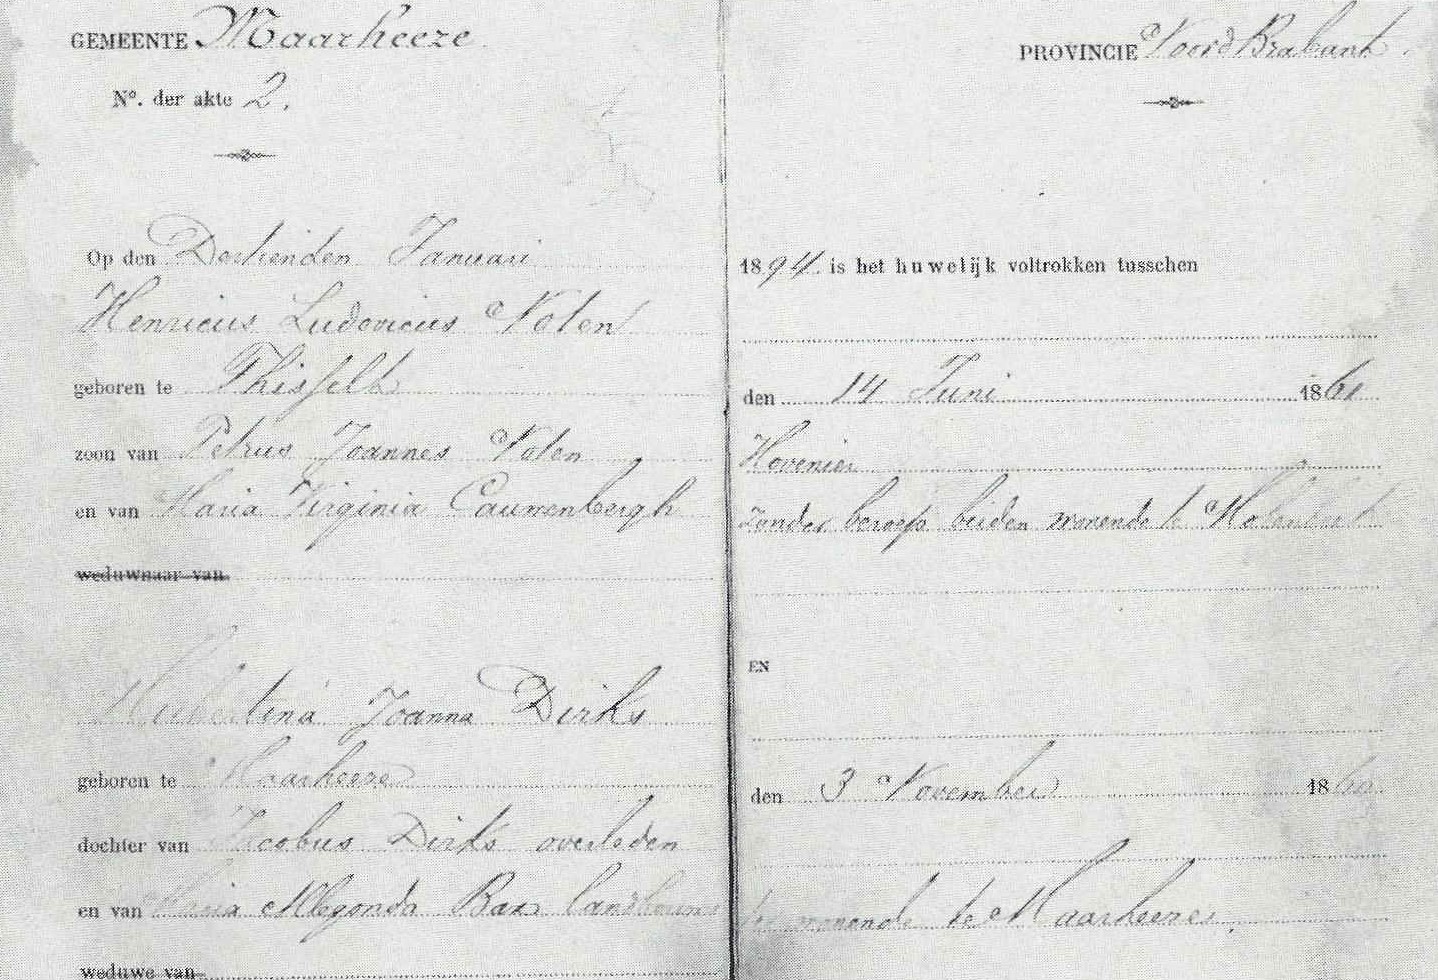 GEMEENTE Maarheeze
PROVINCIE Noord Brabant.
No. der akte 2.
Op den Dertienden Januari 1894. is het huwelijk voltrokken tusschen
Henricus Ludovicus Nolen
geboren te Thisselt den 14 Juni 1861
zoon van Petrus Joannes Nolen Hovenier
en van Maria Virginia Cauwenbergh zonder beroep beiden wonende te
weduwnaar van
EN
Hubertina Joanna Dirks
geboren te Maarheeze den 3 November 1860
dochter van Jacobus Dirks overleden
en van Maria Allegonda Bax landbouwster wonende te Maarheeze.
weduwe van